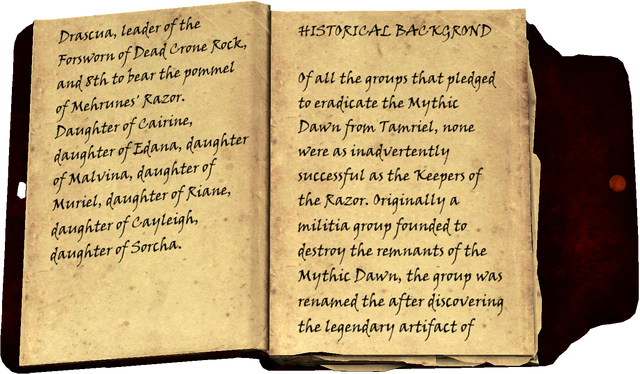 Drascua, leader of the
Forsworn of Dead Crone Rock,
and 8th to bear the pommel
of Mehrunes' Razor.
Daughter of Cairine,
daughter of Edana, daughter
of Malvina, daughter of
Muriel, daughter of Riane,
daughter of Cayleigh,
daughter of Sorcha.
HISTORICAL BACKGROND
Of all the groups that pledged
to eradicate the Mythic
Dawn from Tamriel, none
were as inadvertently
successful as the Keepers of
the Razor. Originally a
militia group founded to
destroy the remnants of the
Mythic Dawn, the group was
renamed the after discovering
the legendary artifact of